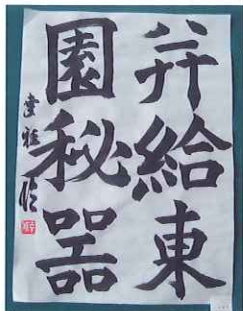 并給東
園秘器